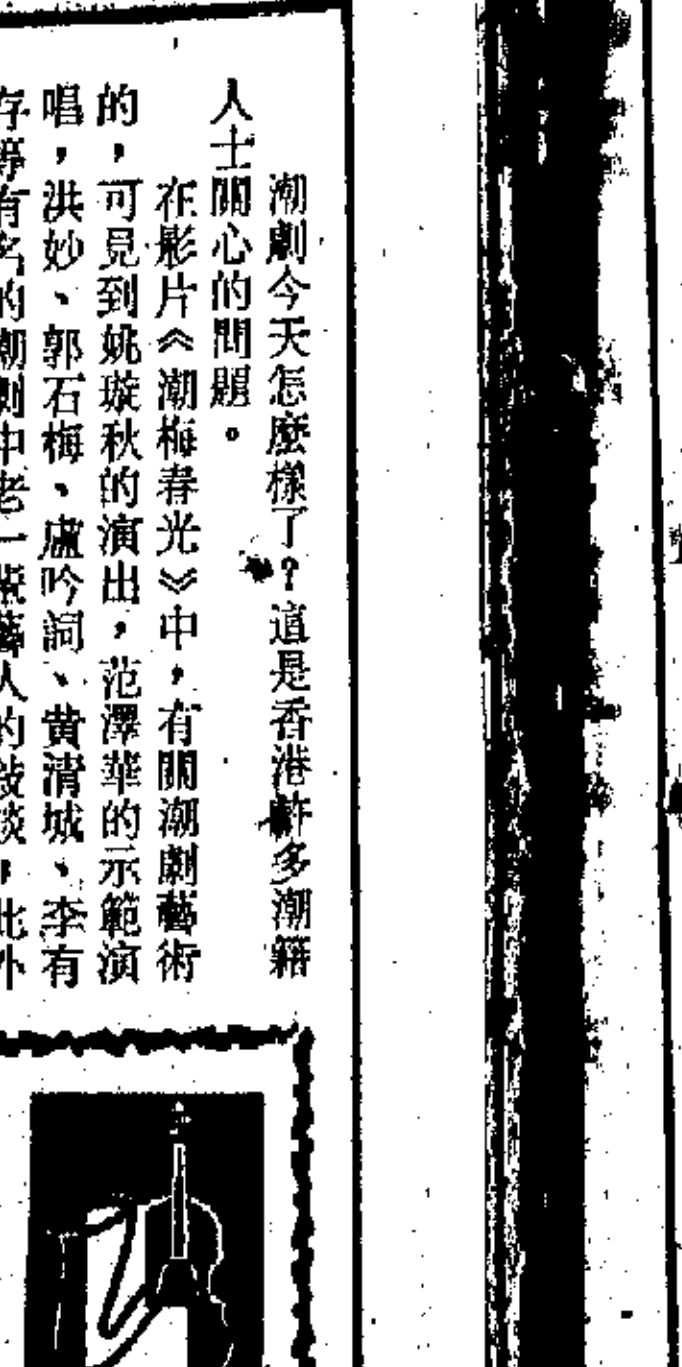 潮劇今天怎麼樣了？這是香港許多潮籍
人士關心的問題。
在影片《潮梅春光》中，有關潮劇藝術
的，可見到姚璇秋的演出，范澤華的示範演
唱，洪妙、郭石梅、盧吟詞、黄清城、李有
存等有名的潮劇中老一輩藝人的敍談，此外